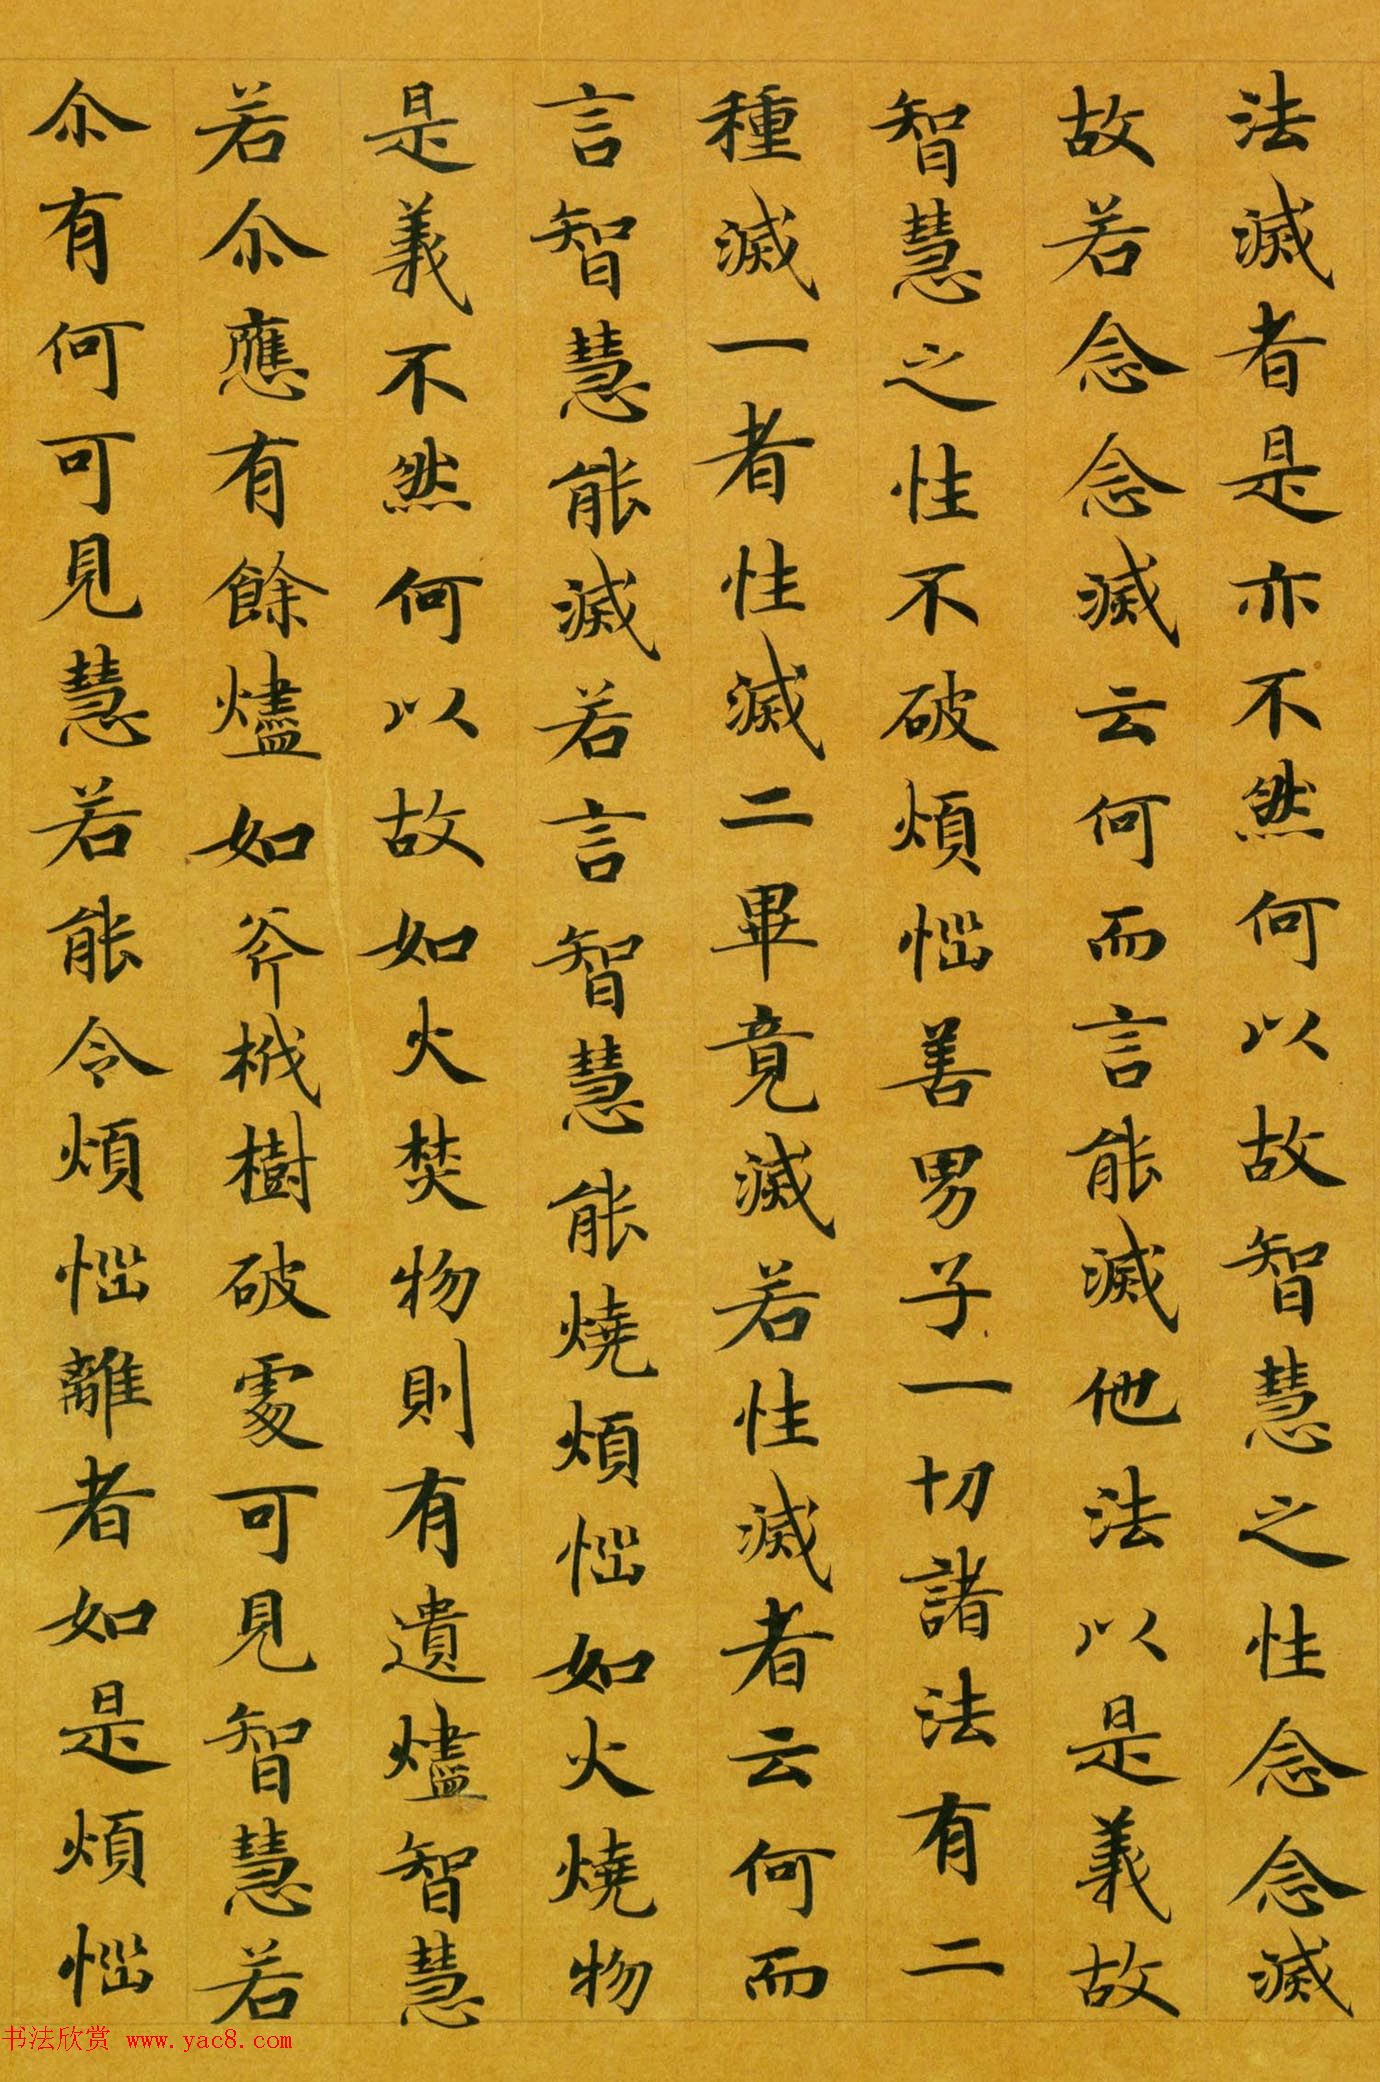 法滅者是亦不然何以故智慧之性念念滅
故若念念滅云何而言能滅他法以是義故
智慧之性不破煩惱善男子一切諸法有二
種滅一者性滅二畢竟滅若性滅者云何而
言智慧能滅若言智慧能燒煩惱如火燒物
是義不然何以故如火焚物則有遺燼智慧
若尒應有餘燼如斧栰樹破處可見智慧若
尒有何可見慧若能令煩惱離者如是煩惱
书法欣赏 www.yac8.com